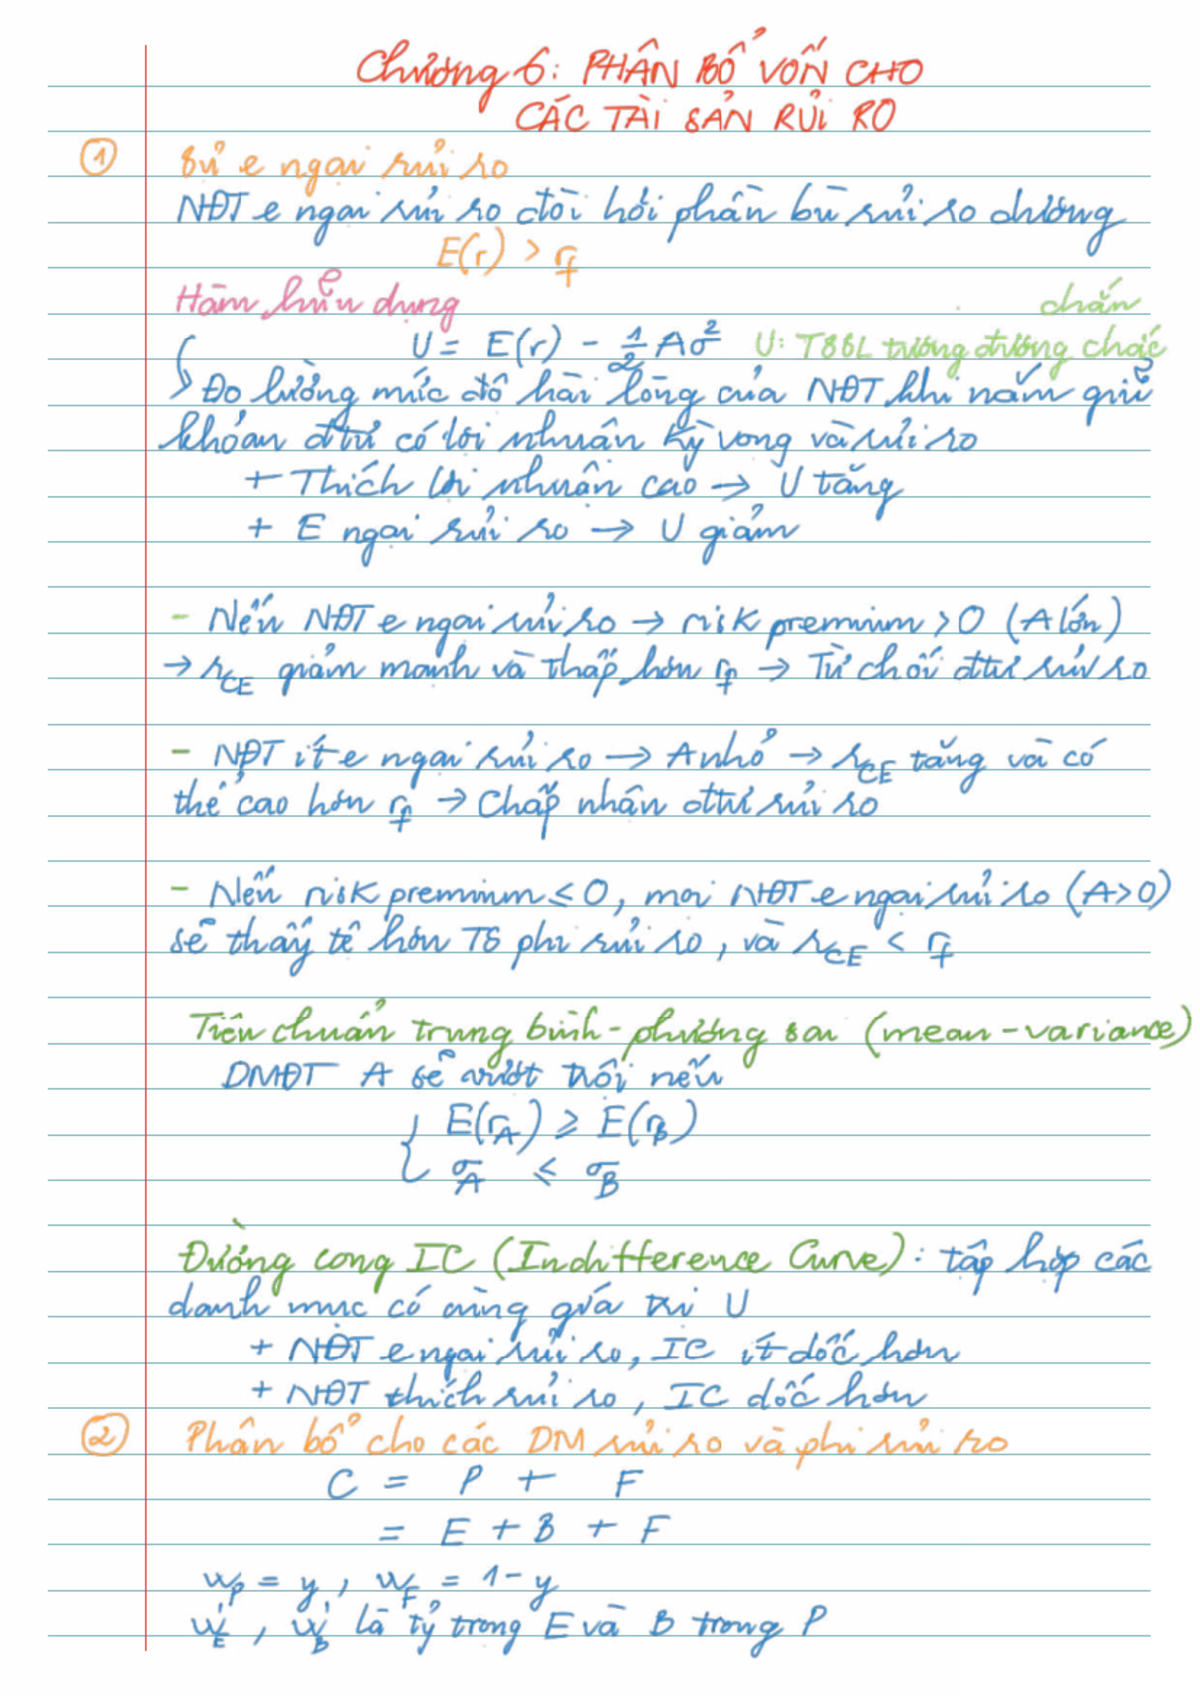 Chương 6: PHÂN BỔ VỐN CHO
CÁC TÀI SẢN RỦI RO
① Sự e ngại rủi ro
NĐT e ngại rủi ro đòi hỏi phần bù rủi ro dương
E(r) > rf
Hàm hữu dụng
chắn
U = E(r) - 1/2 Aσ² U: TSSL tương đương chắc
↳ Đo lường mức độ hài lòng của NĐT khi nắm giữ
khoản đtư có lợi nhuận kỳ vọng và rủi ro
+ Thích lợi nhuận cao → U tăng
+ E ngại rủi ro → U giảm
- Nếu NĐT e ngại rủi ro → risk premium > 0 (A lớn)
→ rCE giảm mạnh và thấp hơn rf → Từ chối đtư rủi ro
- NĐT ít e ngại rủi ro → A nhỏ → rCE tăng và có
thể cao hơn rf → Chấp nhận đtư rủi ro
- Nếu risk premium ≤ 0, mọi NĐT e ngại rủi ro (A>0)
sẽ thấy tệ hơn TS phi rủi ro, và rCE < rf
Tiêu chuẩn trung bình - phương sai (mean-variance)
DMĐT A sẽ vượt trội nếu
{ E(rA) ≥ E(rB)
σA ≤ σB
Đường cong IC (Indifference Curve): tập hợp các
danh mục có cùng giá trị U
+ NĐT e ngại rủi ro, IC ít dốc hơn
+ NĐT thích rủi ro, IC dốc hơn
② Phân bổ cho các DM rủi ro và phi rủi ro
C = P + F
= E + B + F
wP = y, wF = 1 - y
w'E, w'B là tỷ trọng E và B trong P